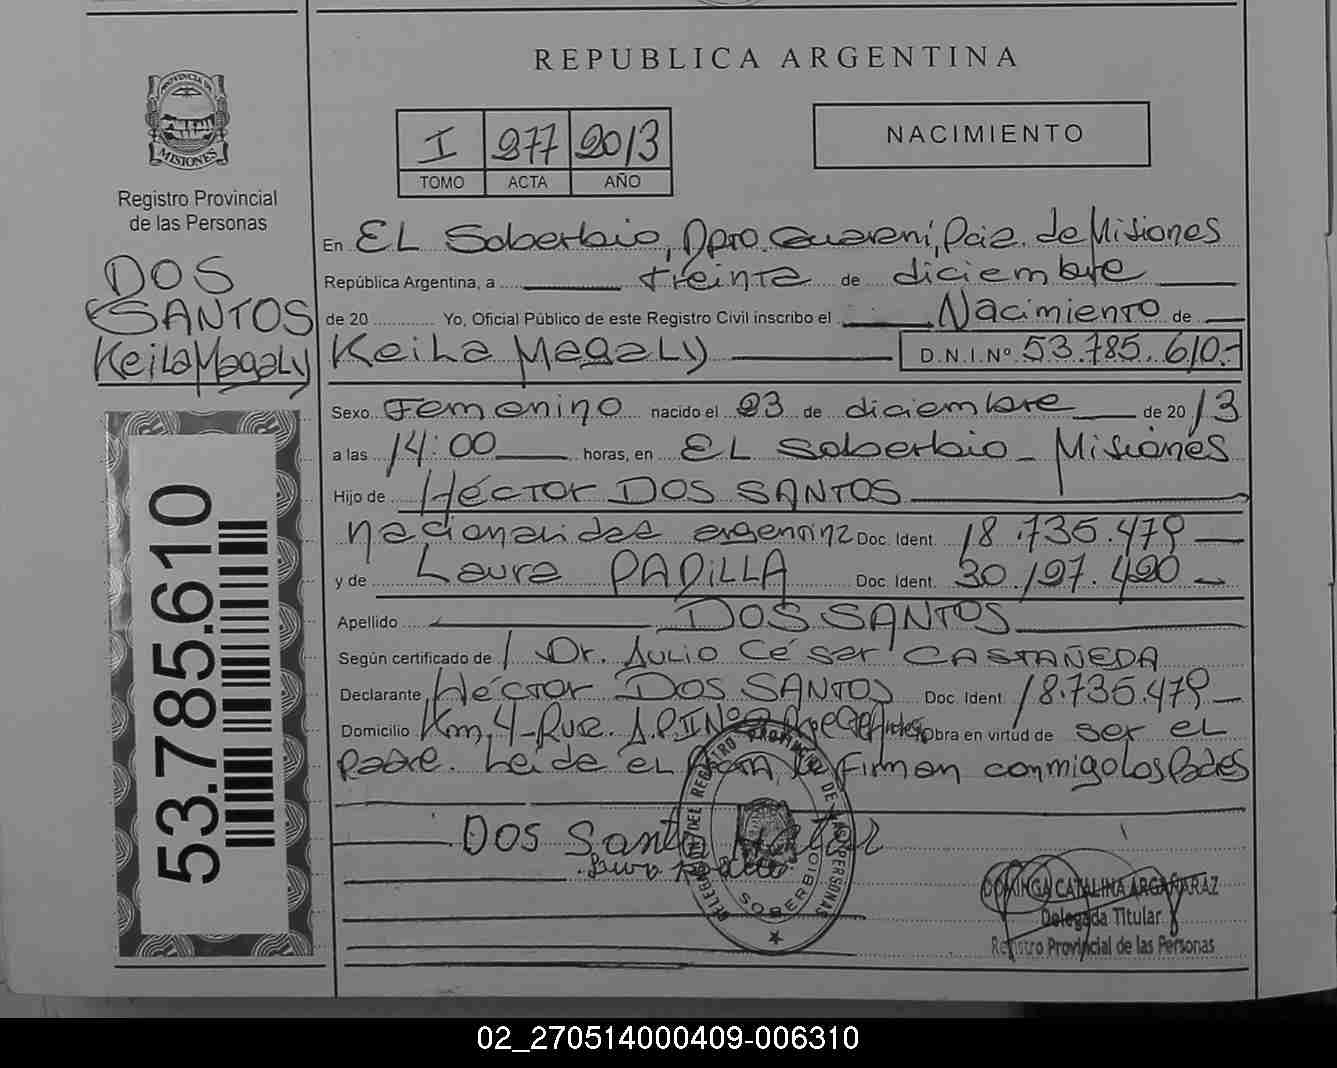 REPUBLICA ARGENTINA
PROVINCIA DE
MISIONES
Registro Provincial
de las Personas
DOS
SANTOS
Keila Magaly
53.785.610
I 277 2013
TOMO ACTA AÑO
NACIMIENTO
En EL Soberbio, Dpto. Guaraní, Pcia. de Misiones
República Argentina, a treinta de diciembre
de 20 Yo, Oficial Público de este Registro Civil inscribo el Nacimiento de
Keila Magaly D.N.I.Nº 53.785.610.-
Sexo Femenino nacido el 23 de diciembre de 2013
a las 14:00 horas, en EL Soberbio - Misiones
Hijo de Héctor DOS SANTOS
nacionalidad argentina Doc. Ident. 18.735.479
y de Laura PADILLA Doc. Ident. 30.197.420
Apellido DOS SANTOS
Según certificado de Dr. Julio César CASTAÑEDA
Declarante Héctor DOS SANTOS Doc. Ident 18.735.479
Domicilio Km. 4 - Ruc. A.P.I Nº 2 Obra en virtud de ser el
Padre. Leida el Acta la firman conmigo los Padres
DOS Santos Hector
Laura Padilla
DELEGACION DEL REGISTRO PROVINCIAL DE LAS PERSONAS
SOBERBIO
DOMINGA CATALINA ARGAÑARAZ
Delegada Titular
Registro Provincial de las Personas
02_270514000409-006310